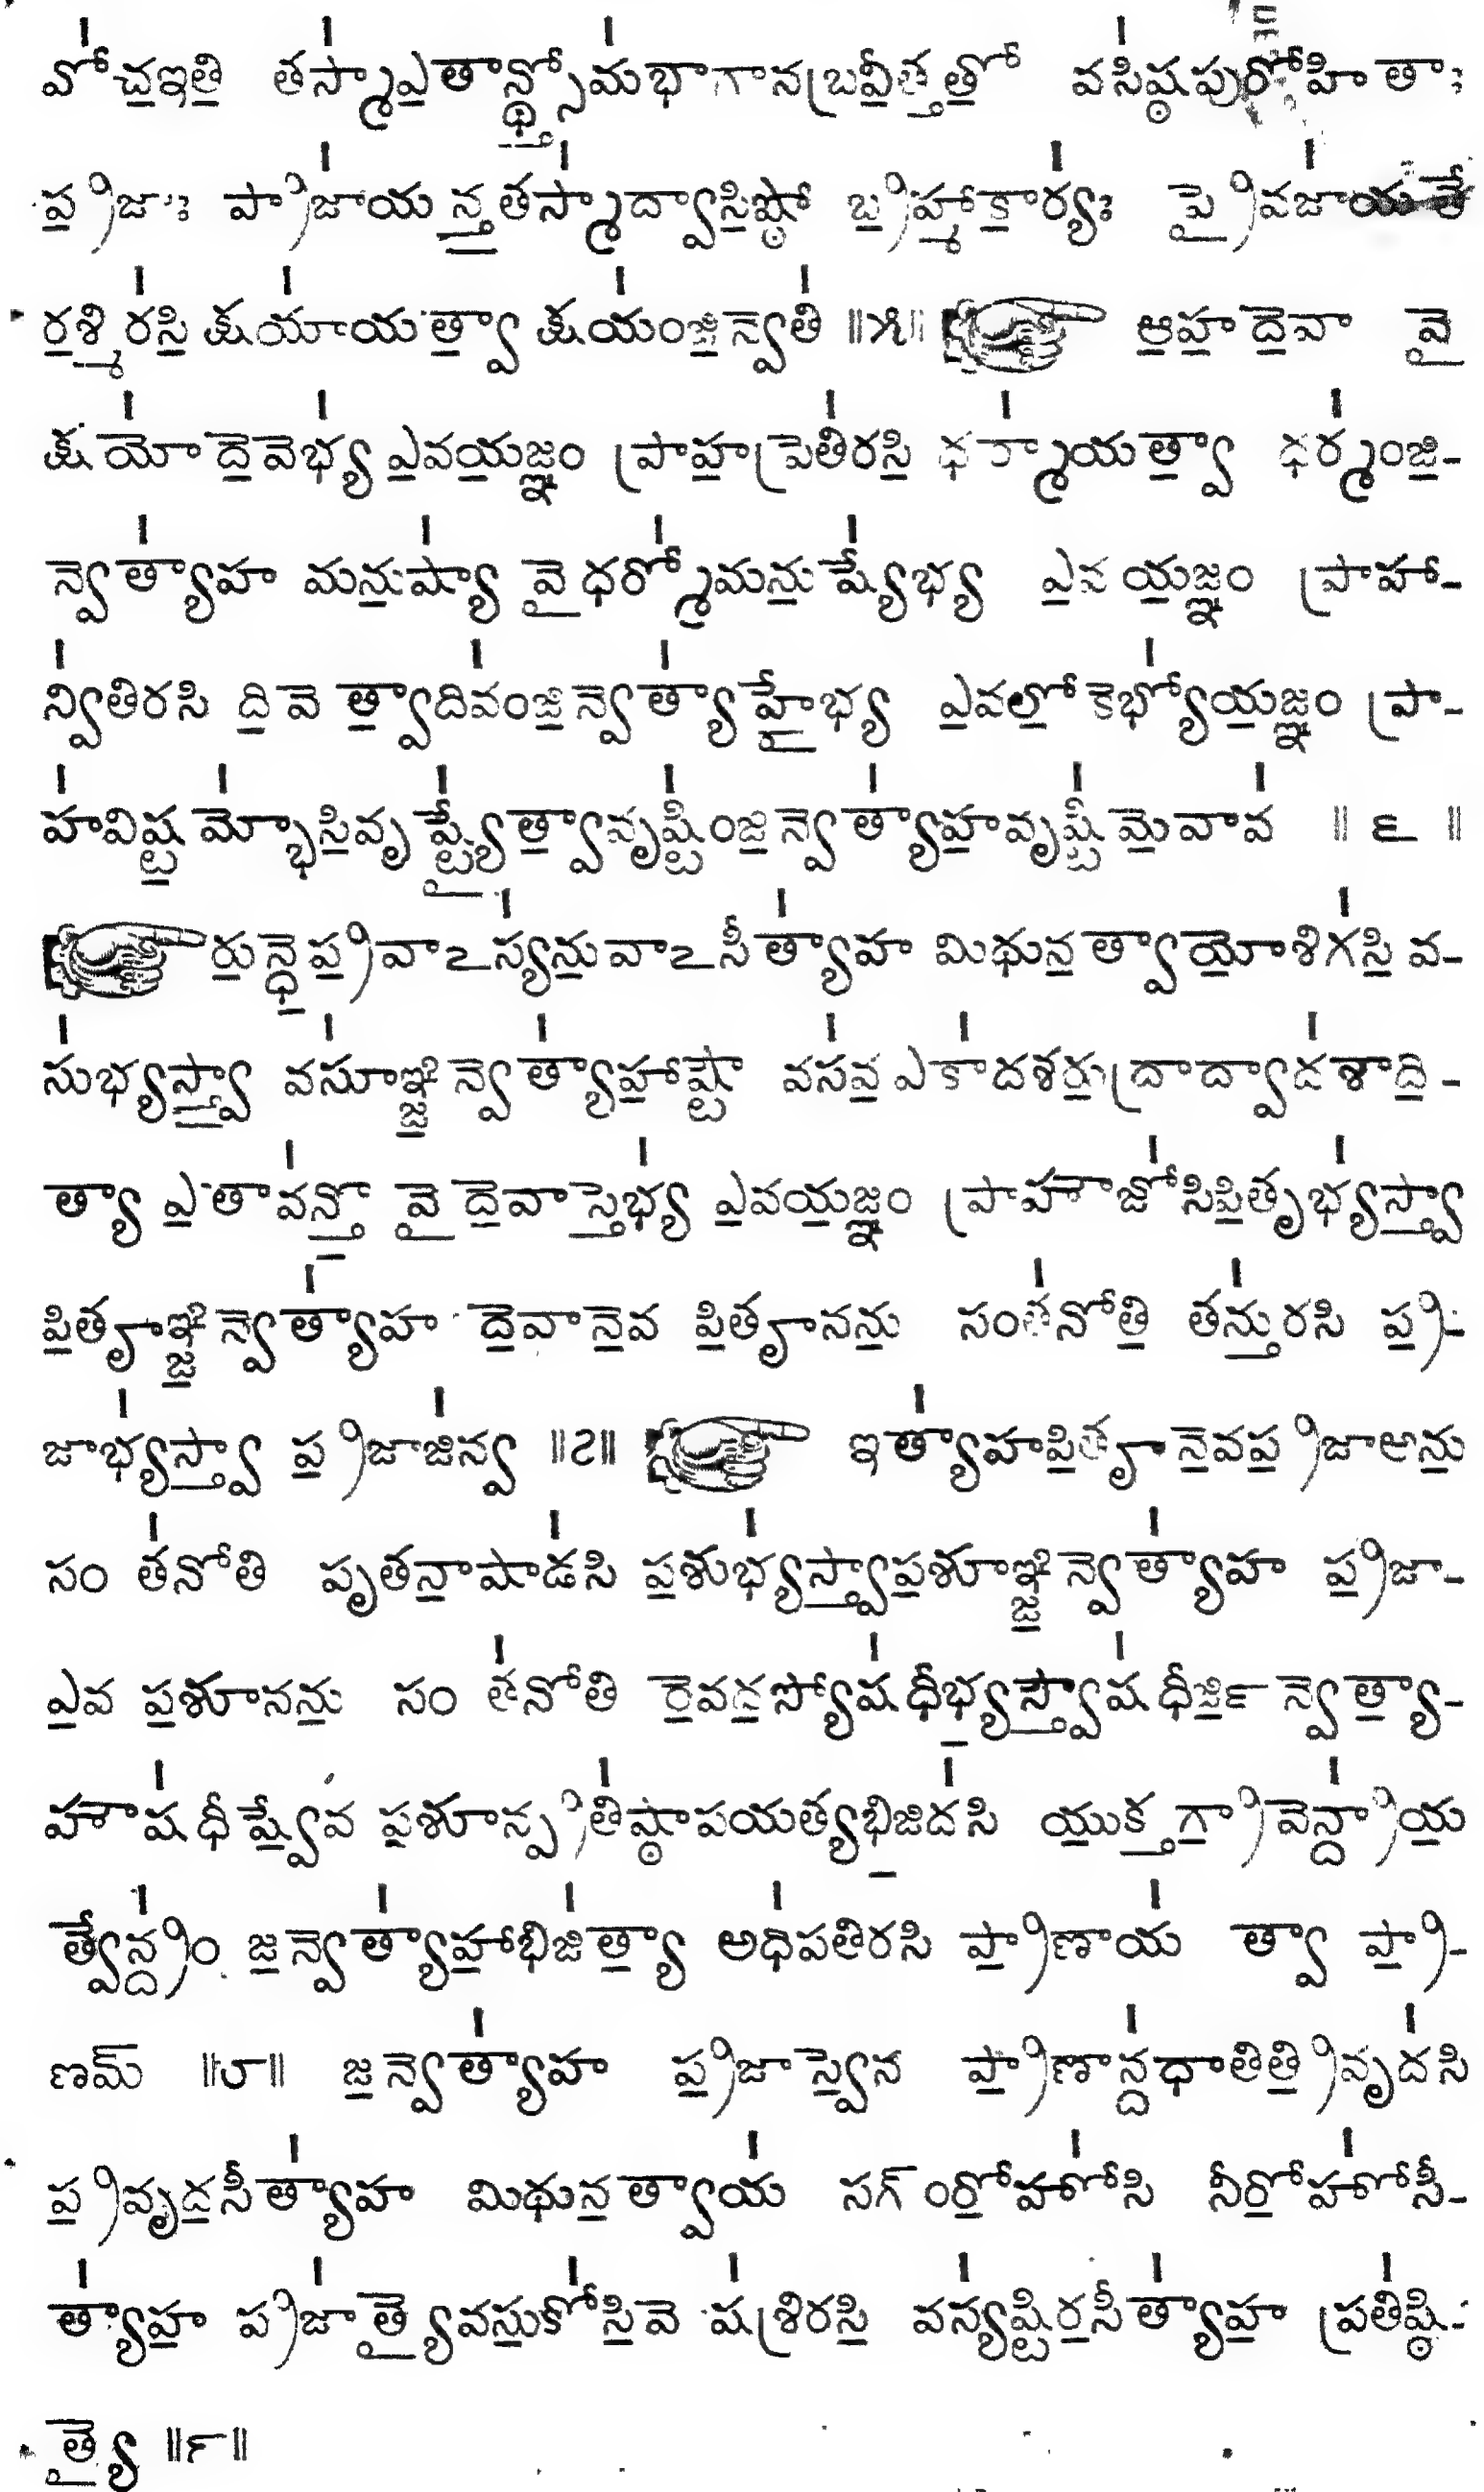 వో॑చ॒ఇతి॒ తస్మా॑ఎ॒తాన్థ్స్తోమ॑భాగానబ్రవీ॒త్తతో॒ వసి॑ష్ఠపురోహితాః
ప్ర॒జాః ప్రాజా॑యన్త॒తస్మా᳚ద్వాసి॒ష్ఠో బ్ర॒హ్మాకా॒ర్యః॑ ప్రైవజా॑యతే
ర॒శ్మిర॑సి॒ క్షయా॑యత్వా॒ క్షయం॑జి॒న్వేతి॑ ॥౫॥ ఆ॒హ॒దే॒వా వై
క్షయో॑దే॒వేభ్య॑ఎ॒వయ॒జ్ఞం ప్రాహ॒ప్రేతి॑రసి॒ ధర్మా॑యత్వా॒ ధర్మం॑జి॒-
న్వేత్యా॑హ మను॒ష్యా॑ వైధర్మో॑మను॒ష్యే᳚భ్య ఎ॒వ య॒జ్ఞం ప్రాహా-
న్వి॑తిరసి ది॒వే త్వా॒దివం॑జి॒న్వేత్యా॑హై॒భ్య ఎ॒వలో॒కేభ్యో॑య॒జ్ఞం ప్రా-
హ॑విష్ట॒మ్భో॑సి॒వృష్ట్యై᳚త్వా॒వృష్టిం॑జి॒న్వేత్యా॑హ॒వృష్టి॑మే॒వావ॑ ॥ ౬ ॥
రు॒న్ధే॒ప్ర॒వాఽస్య॑ను॒వాఽసీత్యా॑హ మిథున॒త్వాయో॒శిగ॑సి॒ వ-
సు॑భ్యస్త్వా॒ వసూ᳚ఞ్జి॒న్వేత్యా॑హా॒ష్టౌ వస॑వ॒ఎకా॑దశరు॒ద్రాద్వాద॑శాది॒-
త్యా ఎ॒తావ॑న్తో॒ వై దే॒వాస్తేభ్య॑ ఎ॒వయ॒జ్ఞం ప్రాహౌజో॑సిపి॒తృభ్య॑స్త్వా॒
పి॒తౄఞ్జి॒న్వేత్యా॑హ దే॒వానే॒వ పి॒తౄనను॒ సంత॑నోతి॒ తన్తు॑రసి ప్ర॒-
జాభ్య॑స్త్వా॒ ప్ర॒జాజి॑న్వ ॥౭॥ ఇత్యా॑హపి॒తౄనే॒వప్ర॒జాఅను॒
సం త॑నోతి పృతనా॒షాడ॑సి ప॒శుభ్య॑స్త్వా॒ప॒శూఞ్జి॒న్వేత్యా॑హ ప్ర॒జా-
ఎ॒వ ప॒శూనను॒ సం త॑నోతి రే॒వద॒స్యోష॑ధీభ్య॒స్త్వౌష॑ధీర్జి॒న్వేత్యా॒-
హౌష॑ధీష్వే॒వ ప॒శూన్ప్రతి॑ష్ఠాపయత్యభి॒జిద॑సి యు॒క్తగ్రా॒వేన్ద్రా॑య॒
త్వేన్ద్రం॑ జి॒న్వేత్యా॑హా॒భిజి॑త్యా॒ అధి॑పతిరసి ప్రా॒ణాయ॑ త్వా ప్రా॒-
ణమ్ ॥౮॥ జి॒న్వేత్యా॑హ ప్ర॒జాస్వే॒వ ప్రా॒ణాన్ద॑ధాతిత్రి॒వృద॑సి
ప్ర॒వృద॒సీత్యా॑హ మిథున॒త్వాయ॑ సగ్ంరో॒హో॑సి నీరో॒హో॑సీ-
త్యా॑హ॒ ప్రజా᳚త్యై॒వసు॒కో॑సి॒వే ష॑శ్రిరసి॒ వస్య॑ష్టిర॒సీత్యా॑హ॒ ప్రతి॑ష్ఠి-
త్యై ॥౯॥